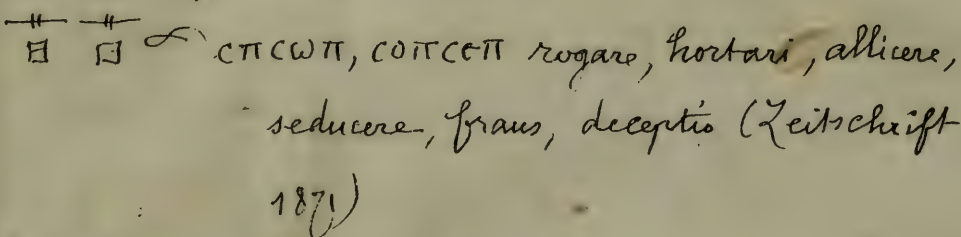 𓊃𓊪 𓊃𓊪 ⲥⲡⲥⲱⲡ, ⲥⲟⲡⲥⲉⲡ rogare, hortari, allicere,
seducere, fraus, deceptio (Zeitschrift
1871)